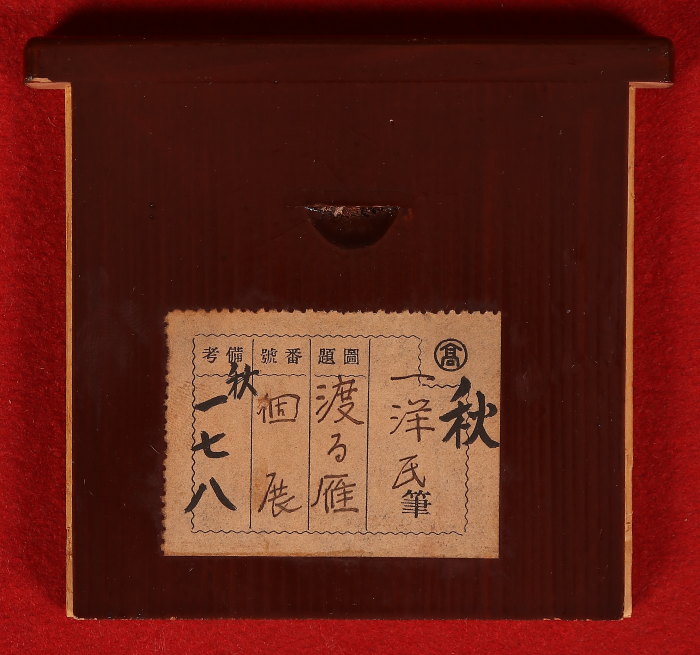 髙
秋
一洋氏筆
圖題
渡る雁
番號
個展
備考
秋一七八